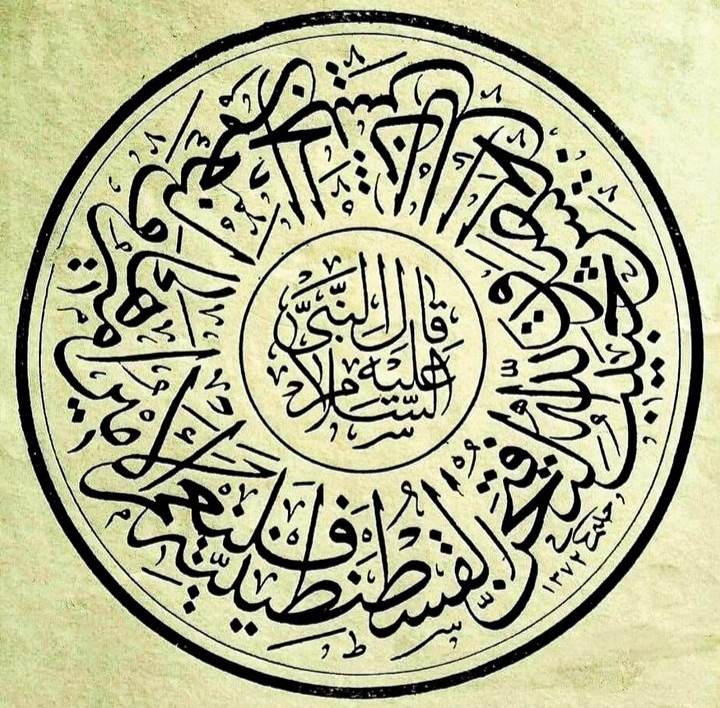 قال النبي
عليه السلام
لتفتحن القسطنطينية فلنعم الأمير أميرها ولنعم الجيش ذلك الجيش
حليم ١٣٧٢